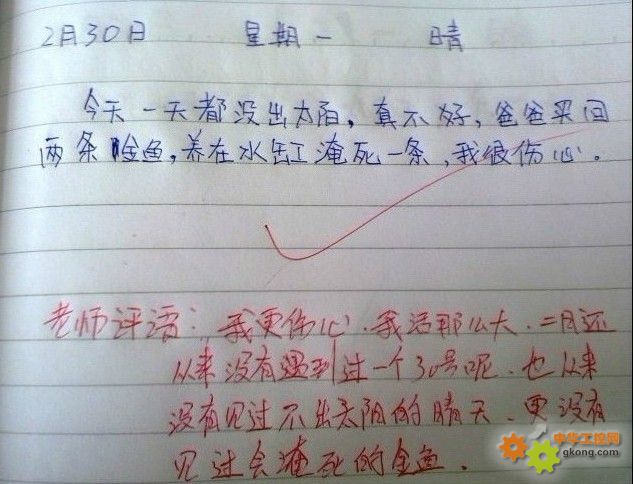 2月30日 星期一 晴
今天一天都没出太阳，真不好，爸爸买回
两条金鱼，养在水缸淹死一条，我很伤心。
老师评语：我更伤心，我活那么大，二月还
从来没有遇到过一个30号呢，也从来
没有见过不出太阳的晴天，更没有
见过会淹死的金鱼。
中华工控网
gkong.com